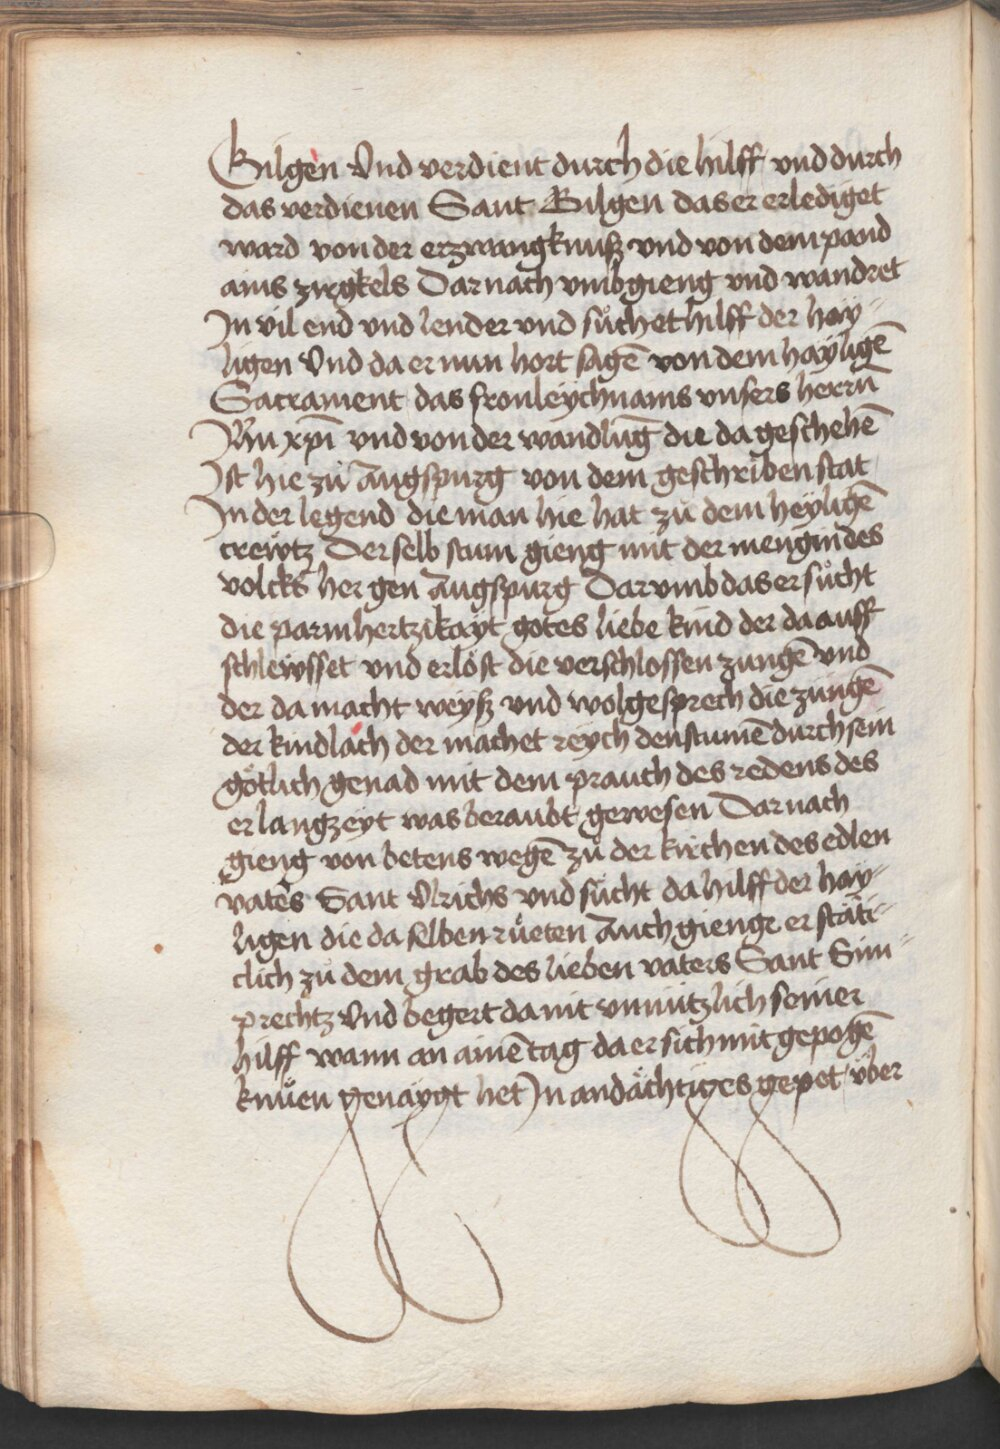 Gilgen Vnd verdient durch die hilff vnd durch
das verdienen Sant Gilgen das er erlediget
ward von der erzwangknuß vnd von dem pand
ains zirgkels Darnach vmbgieng vnd wandret
In vil end vnd lender vnd sůchet hilff der hay-
ligen Vnd da er nun hort sagē von dem hayligē
Sacrament das fronleychnams vnsers herrn̄
Jhu xpi̅ vnd von der wandlūg die da geschehē
Ist hie zů Augspurg von dem geschriben stat
In der legend die man hie hat zů dem heyligē
crewtz Der selb stum gieng mit der mengin des
volcks her gen Augspurg Darvmb das er sůcht
die parmhertzikayt gotes liebe kind der da auff
schleysset vnd erlöst die verschlossen zungē vnd
der da macht weyß vnd wolgesprech die zungē
der kindlach der machet reych den stumē durch sein
götlich genad mit dem prauch des redens des
er lang zeyt was beraubt gewesen Darnach
gieng von betens wegē zů der kirchen des edlen
vaters Sant Vlrichs vnd sůcht da hilff der hay-
ligen die da selben růeten Auch gienge er stäti-
clich zů dem grab des lieben vaters Sant Sim-
prechtz Vnd begert da nit vnnützlich seiner
hilff wann an ainē tag da er sich mit gepogē
knüen genaygt het In andächtiges gepet über